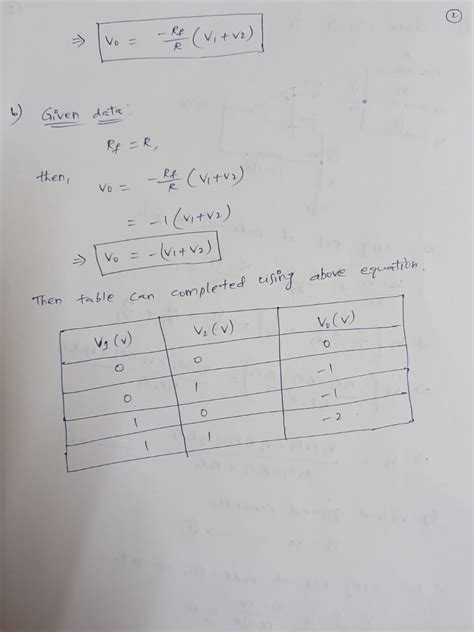 2
⇒ V₀ = -Rf/R (V₁ + V₂)
b) Given data:
Rf = R,
then, V₀ = -Rf/R (V₁+V₂)
= -1 (V₁+V₂)
⇒ V₀ = -(V₁+V₂)
Then table can completed using above equation.
V₁ (V) V₂ (V) V₀ (V)
0 0 0
0 1 -1
1 0 -1
1 1 -2